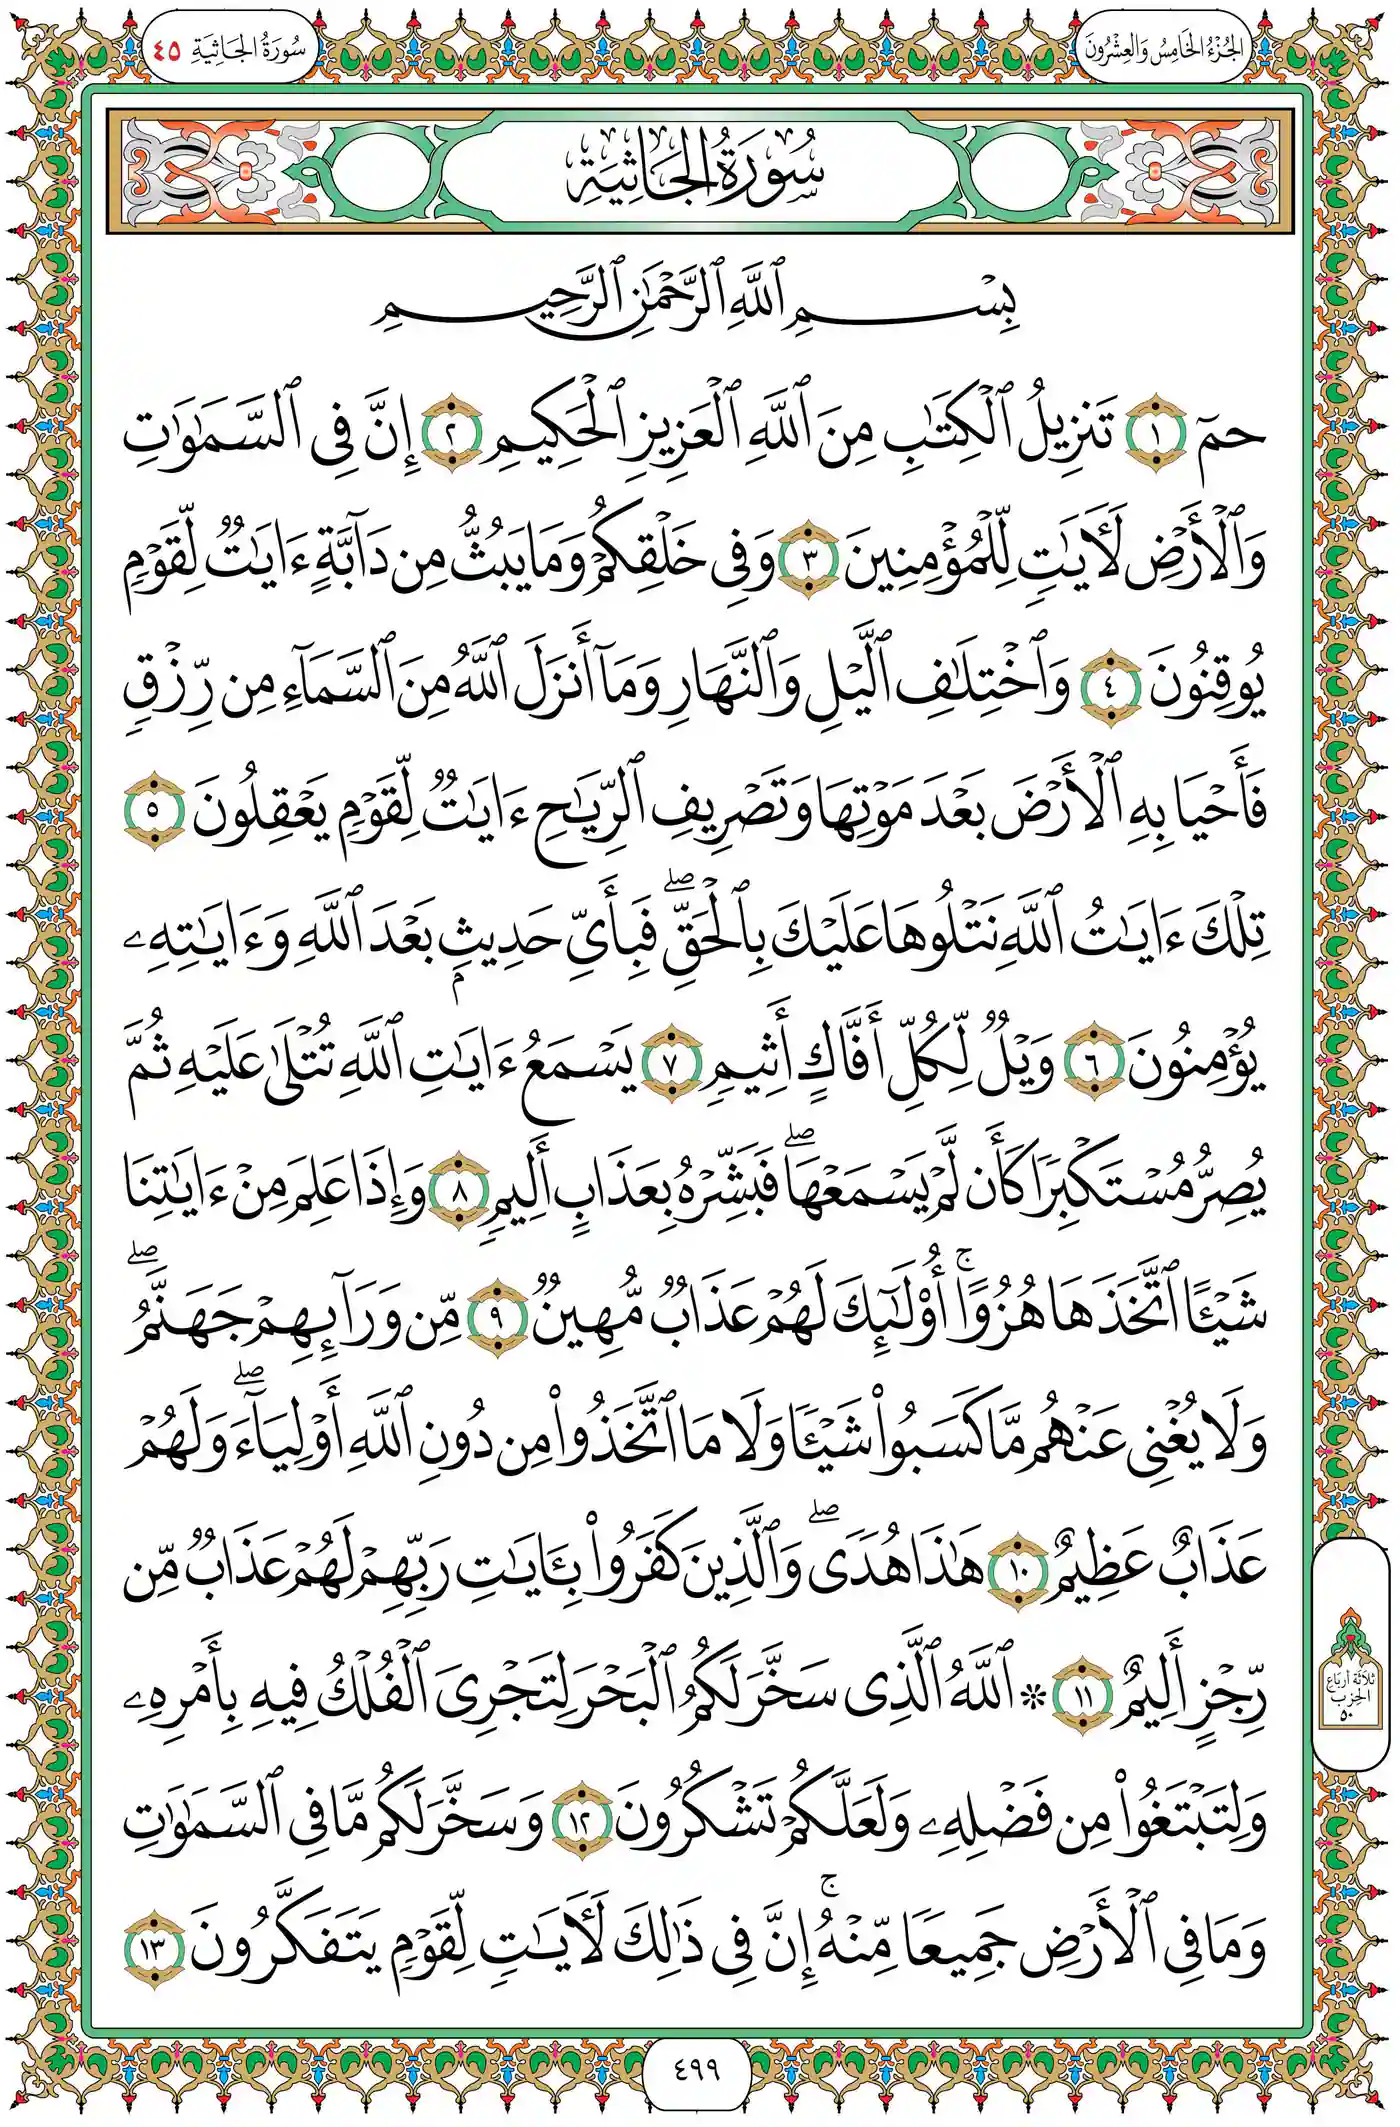 الجُزْءُ الخَامِسُ وَالعِشْرُونَ
سُورَةُ الجَاثِيَةِ ٤٥
سُورَةُ الجَاثِيَةِ
بِسْمِ ٱللَّهِ ٱلرَّحْمَٰنِ ٱلرَّحِيمِ
حمٓ ١ تَنزِيلُ ٱلْكِتَٰبِ مِنَ ٱللَّهِ ٱلْعَزِيزِ ٱلْحَكِيمِ ٢ إِنَّ فِى ٱلسَّمَٰوَٰتِ
وَٱلْأَرْضِ لَـَٔايَٰتٍ لِّلْمُؤْمِنِينَ ٣ وَفِى خَلْقِكُمْ وَمَا يَبُثُّ مِن دَآبَّةٍ ءَايَٰتٌ لِّقَوْمٍ
يُوقِنُونَ ٤ وَٱخْتِلَٰفِ ٱلَّيْلِ وَٱلنَّهَارِ وَمَآ أَنزَلَ ٱللَّهُ مِنَ ٱلسَّمَآءِ مِن رِّزْقٍ
فَأَحْيَا بِهِ ٱلْأَرْضَ بَعْدَ مَوْتِهَا وَتَصْرِيفِ ٱلرِّيَٰحِ ءَايَٰتٌ لِّقَوْمٍ يَعْقِلُونَ ٥
تِلْكَ ءَايَٰتُ ٱللَّهِ نَتْلُوهَا عَلَيْكَ بِٱلْحَقِّ ۖ فَبِأَىِّ حَدِيثٍۭ بَعْدَ ٱللَّهِ وَءَايَٰتِهِۦ
يُؤْمِنُونَ ٦ وَيْلٌ لِّكُلِّ أَفَّاكٍ أَثِيمٍ ٧ يَسْمَعُ ءَايَٰتِ ٱللَّهِ تُتْلَىٰ عَلَيْهِ ثُمَّ
يُصِرُّ مُسْتَكْبِرًا كَأَن لَّمْ يَسْمَعْهَا ۖ فَبَشِّرْهُ بِعَذَابٍ أَلِيمٍ ٨ وَإِذَا عَلِمَ مِنْ ءَايَٰتِنَا
شَيْـًٔا ٱتَّخَذَهَا هُزُوًا ۚ أُو۟لَٰٓئِكَ لَهُمْ عَذَابٌ مُّهِينٌ ٩ مِّن وَرَآئِهِمْ جَهَنَّمُ ۖ
وَلَا يُغْنِى عَنْهُم مَّا كَسَبُوا۟ شَيْـًٔا وَلَا مَا ٱتَّخَذُوا۟ مِن دُونِ ٱللَّهِ أَوْلِيَآءَ ۖ وَلَهُمْ
عَذَابٌ عَظِيمٌ ١٠ هَٰذَا هُدًى ۖ وَٱلَّذِينَ كَفَرُوا۟ بِـَٔايَٰتِ رَبِّهِمْ لَهُمْ عَذَابٌ مِّن
رِّجْزٍ أَلِيمٌ ١١ ۞ ٱللَّهُ ٱلَّذِى سَخَّرَ لَكُمُ ٱلْبَحْرَ لِتَجْرِىَ ٱلْفُلْكُ فِيهِ بِأَمْرِهِۦ
وَلِتَبْتَغُوا۟ مِن فَضْلِهِۦ وَلَعَلَّكُمْ تَشْكُرُونَ ١٢ وَسَخَّرَ لَكُم مَّا فِى ٱلسَّمَٰوَٰتِ
وَمَا فِى ٱلْأَرْضِ جَمِيعًا مِّنْهُ ۚ إِنَّ فِى ذَٰلِكَ لَـَٔايَٰتٍ لِّقَوْمٍ يَتَفَكَّرُونَ ١٣
ثلاثة أرباع
الحزب
٥٠
٤٩٩